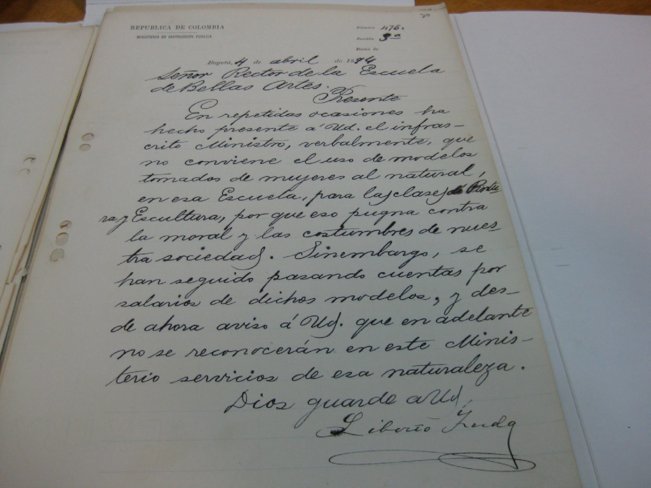 REPUBLICA DE COLOMBIA
MINISTERIO DE INSTRUCCION PUBLICA
Número 476.
Sección 3ª
Ramo de
Bogotá, 4 de abril de 1894
Señor Rector de la Escuela
de Bellas Artes.
Presente
En repetidas ocasiones ha
hecho presente á Ud. el infras-
crito Ministro, verbalmente, que
no conviene el uso de modelos
tomados de mujeres al natural,
en esa Escuela, para las clases de Pintu
ra y Escultura, por que eso pugna contra
la moral y las costumbres de nues-
tra sociedad. Sinembargo, se
han seguido pasando cuentas por
salarios de dichos modelos, y des-
de ahora aviso á Ud. que en adelante
no se reconocerán en este Minis-
terio servicios de esa naturaleza.
Dios guarde a Ud.
Liborio Zerda